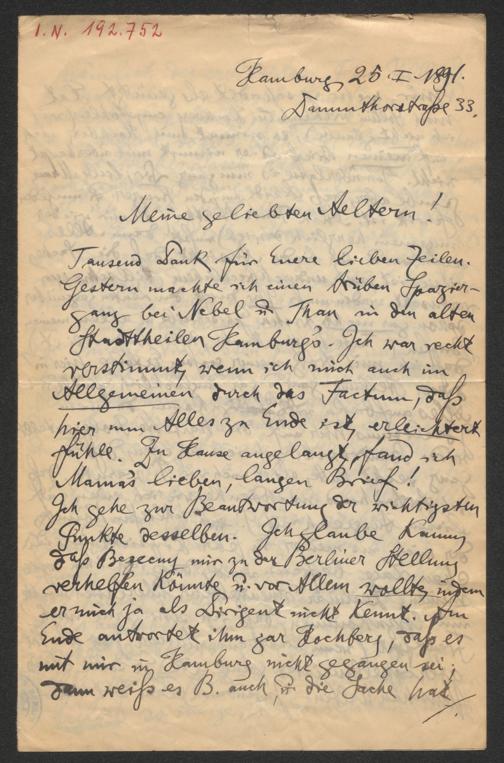 I.N. 192.752
Hamburg, 25.I.1891.
Dammthorstraße 33.
Meine geliebten Aeltern!
Tausend Dank für Euere lieben Zeilen.
Gestern machte ich einen trüben Spazier-
gang bei Nebel u. Thau in den alten
Stadttheilen Hamburg's. Ich war recht
verstimmt, wenn ich mich auch im
Allgemeinen durch das Factum, daß
hier nun Alles zu Ende ist, erleichtert
fühle. Zu Hause angelangt, fand ich
Mama's lieben, langen Brief!
Ich gehe zur Beantwortung der wichtigsten
Punkte desselben. Ich glaube kaum,
daß Bezecny mir zu der Berliner Stellung
verhelfen könnte u. vor Allem wollte, indem
er mich ja als Dirigent nicht kennt. Am
Ende antwortet ihm gar Hochberg, daß es
mit mir in Hamburg nicht gegangen sei;
dann weiß es B. auch, u. die Sache hat